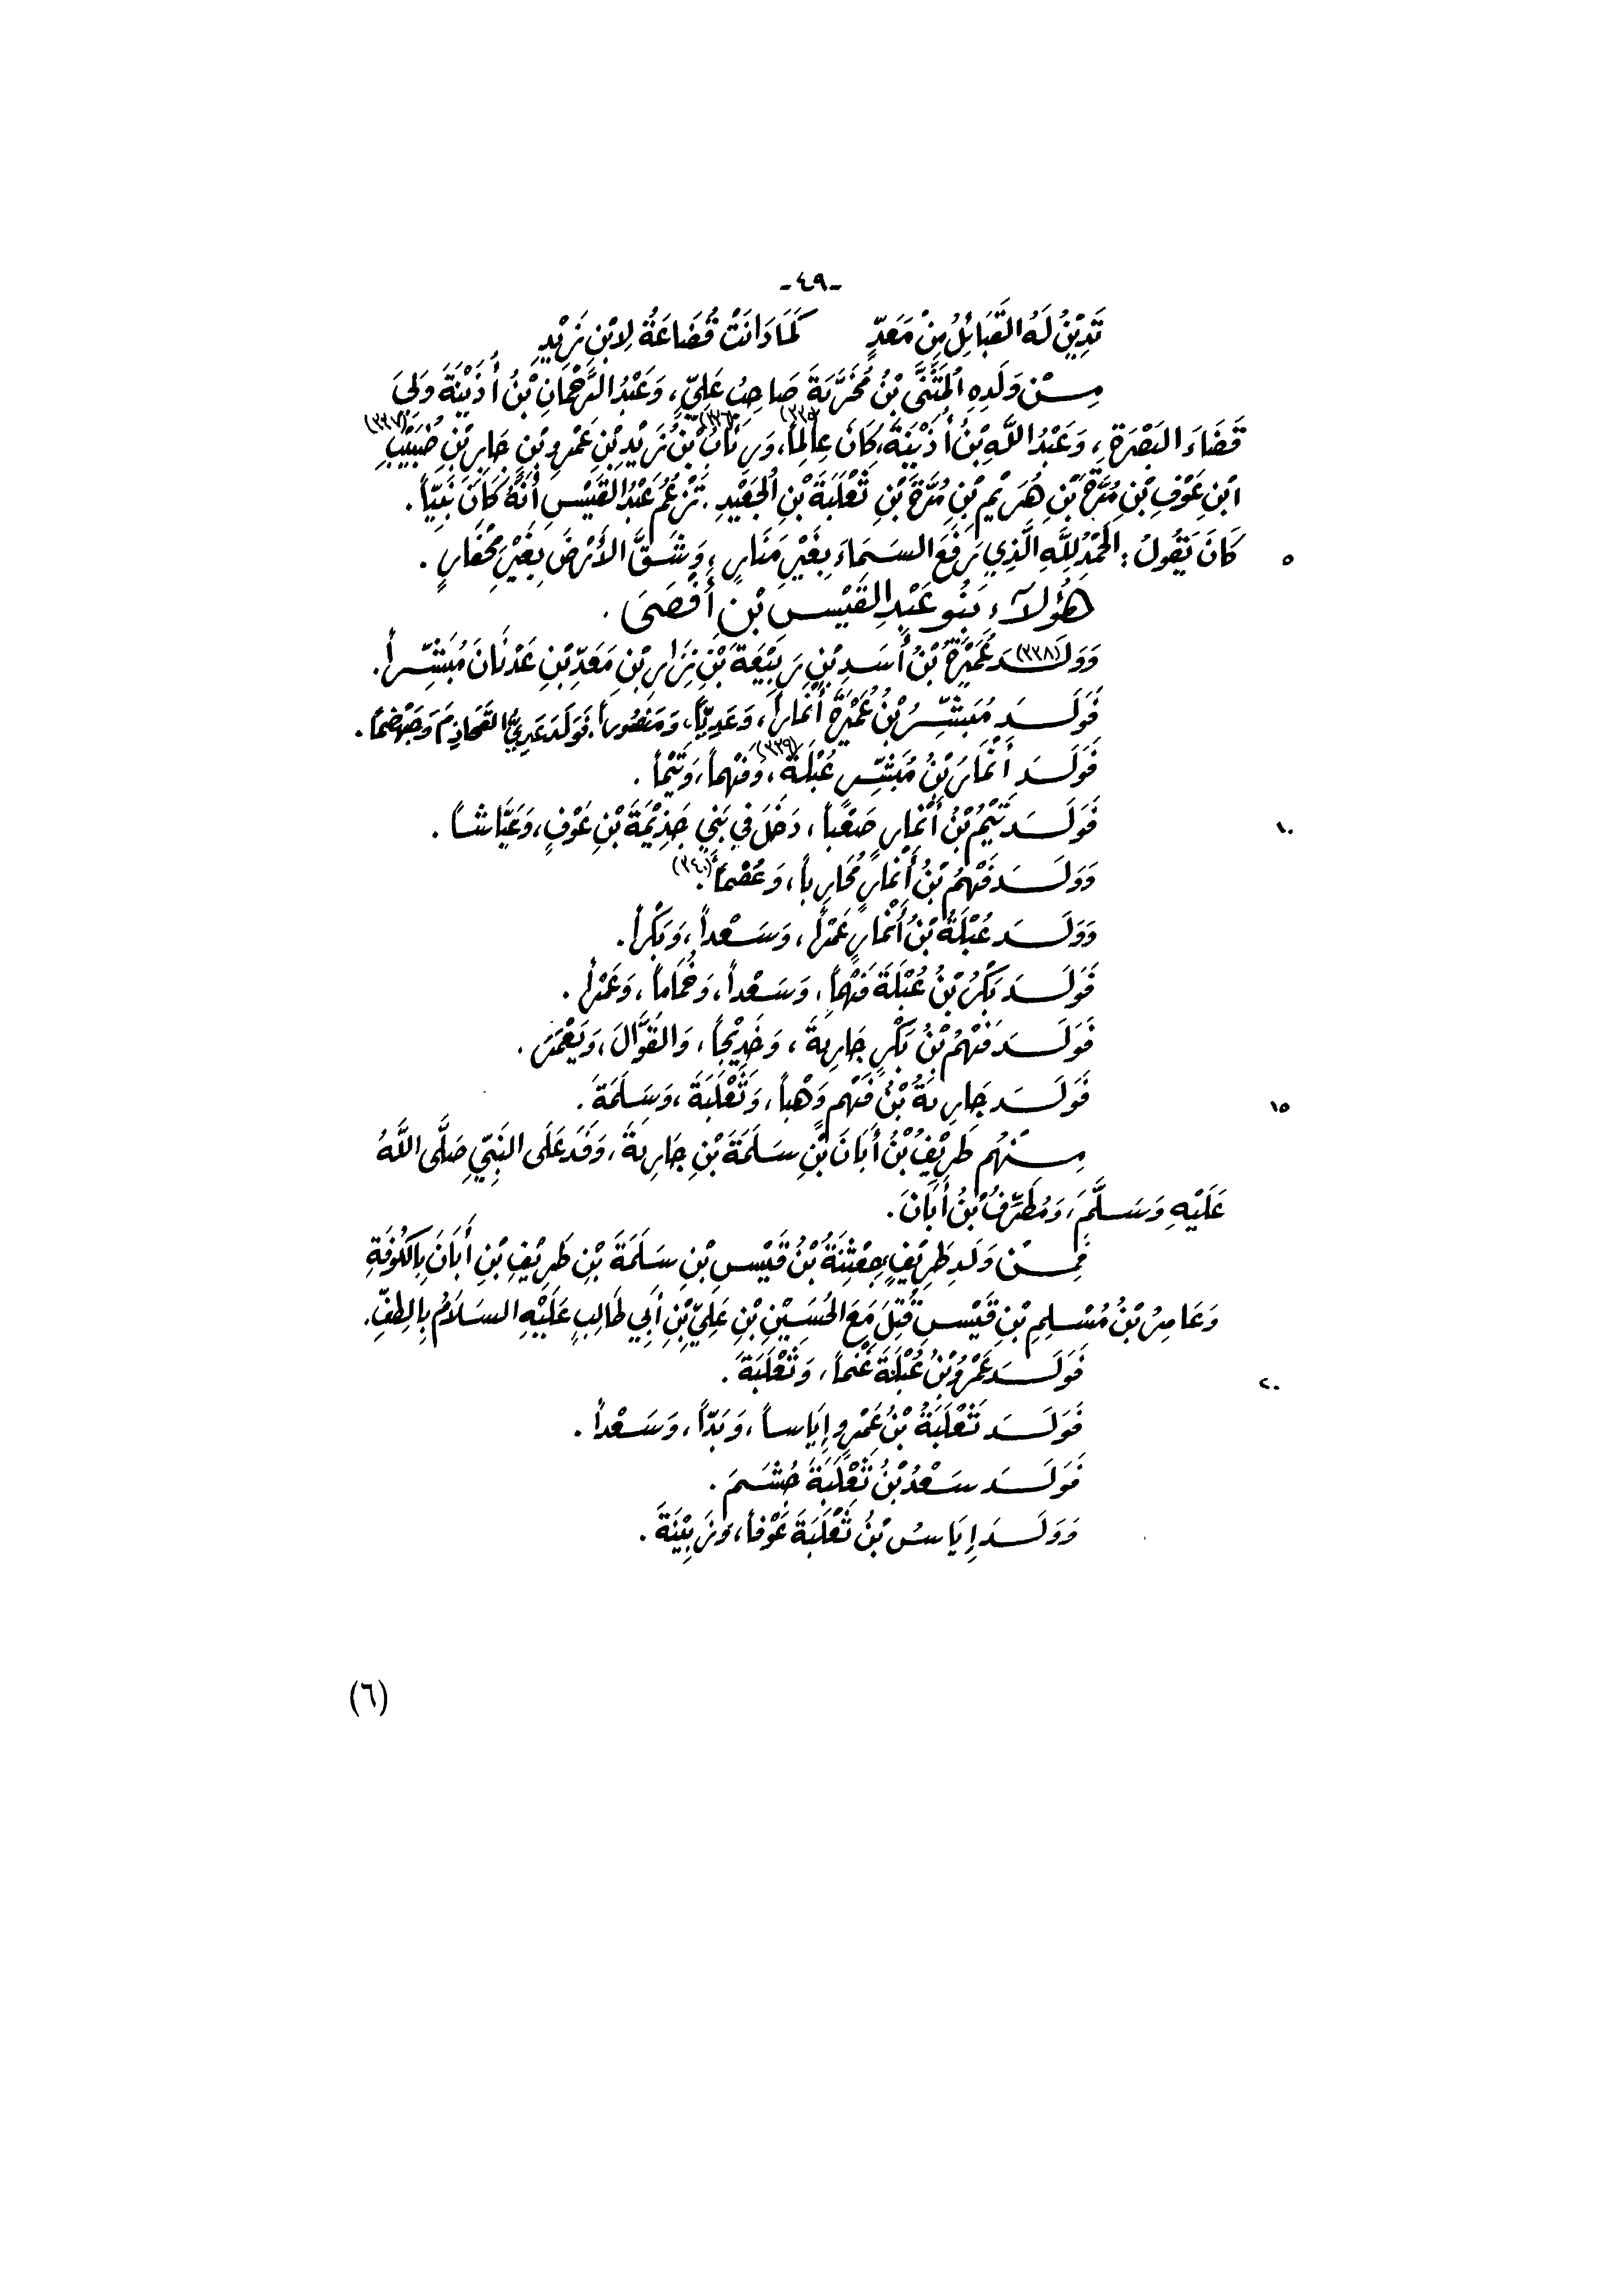 -٤٩-
تَدِيْنُ لَهُ القَبَائِلُ مِنْ مَعَدٍّ كَمَا دَانَتْ قُضَاعَةُ لِابْنِ زَيْدِ
مِنْ وَلَدِهِ المُثَنَّى بْنُ مُخَرَّبَةَ صَاحِبُ عَلِيٍّ، وَعَبْدُ الرَّحْمَانِ بْنُ أُذَيْنَةَ وَلِيَ
قَضَاءَ البَصْرَةِ، وَعَبْدُ اللَّهِ بْنُ أُذَيْنَةَ، كَانَ عَالِماً (٣٣٥)، وَرِئَابُ (٣٣٦) بْنُ زَيْدِ بْنِ عَمْرِو بْنِ جَابِرِ بْنِ ضُبَيْبِ (٣٣٧)
ابْنِ عَوْفِ بْنِ مُرَّةَ بْنِ هُرَيْمِ بْنِ مُرَّةَ بْنِ ثَعْلَبَةَ بْنِ الجُعَيْدِ. تَزْعُمُ عَبْدُ القَيْسِ أَنَّهُ كَانَ نَبِيّاً.
كَانَ يَقُولُ: الحَمْدُ لِلَّهِ الَّذِي رَفَعَ السَمَاءَ بِغَيْرِ مَنَارٍ، وَشَقَّ الأَرْضَ بِغَيْرِ مِحْفَارٍ. ٥
هَؤُلَآءِ بَنُو عَبْدِ القَيْسِ بْنِ أَفْصَى.
وَوَلَدَ (٣٣٨) عُمَيْرَةُ بْنُ أَسَدِ بْنِ رَبِيْعَةَ بْنِ نِزَارِ بْنِ مَعَدِّ بْنِ عَدْنَانَ مُبَشِّراً.
فَوَلَدَ مُبَشِّرُ بْنُ عُمَيْرَةَ أَنْمَاراً، وَعَدِيّاً، وَمَنْصُوراً. فَوَلَدَ عَدِيٌّ القَحَاذِمَ وَجَهْضَماً.
فَوَلَدَ أَنْمَارُ بْنُ مُبَشِّرٍ عُبْلَةَ (٣٣٩)، وَفَهْماً، وَتَيْماً.
فَوَلَدَ تَيْمُ بْنُ أَنْمَارٍ صَعْباً، دَخَلَ فِي بَنِي جَذِيْمَةَ بْنِ عَوْفٍ، وَعَيَّاشاً. ١٠
وَوَلَدَ فَهْمُ بْنُ أَنْمَارٍ مُحَارِباً، وَعُصْماً (٣٤٠).
وَوَلَدَ عُبْلَةُ بْنُ أَنْمَارٍ عَمْراً، وَسَعْداً، وَبَكْراً.
فَوَلَدَ بَكْرُ بْنُ عُبْلَةَ فَهْماً، وَسَعْداً، وَحُمَاماً، وَعَمْراً.
فَوَلَدَ فَهْمُ بْنُ بَكْرٍ جَارِيَةَ، وَخَدِيْجاً، وَالقَوَّالَ، وَيَعْمَرَ.
فَوَلَدَ جَارِيَةُ بْنُ فَهْمٍ وَهْباً، وَثَعْلَبَةَ، وَسَلَمَةَ. ١٥
مِنْهُم طَرِيْفُ بْنُ أَبَانَ بْنِ سَلَمَةَ بْنِ جَارِيَةَ، وَفَدَ عَلَى النَبِيِّ صَلَّى اللَّهُ
عَلَيْهِ وَسَلَّمَ، وَمُطَرِّفُ بْنُ أَبَانَ.
فَمِنْ وَلَدِ طَرِيْفٍ جِعْثِنَةُ بْنُ قَيْسِ بْنِ سَلَمَةَ بْنِ طَرِيْفِ بْنِ أَبَانَ بِالكُوفَةِ
وَعَامِرُ بْنُ مُسْلِمِ بْنِ قَيْسٍ قُتِلَ مَعَ الحُسَيْنِ بْنِ عَلِيِّ بْنِ أَبِي طَالِبٍ عَلَيْهِ السَلَامُ بِالطِفِّ.
فَوَلَدَ عَمْرُو بْنُ عُبْلَةَ غَنْماً، وَثَعْلَبَةَ. ٢٠
فَوَلَدَ ثَعْلَبَةُ بْنُ عَمْرٍو إِيَاساً، وَبَدّاً، وَسَعْداً.
فَوَلَدَ سَعْدُ بْنُ ثَعْلَبَةَ جُشَمَ.
وَوَلَدَ إِيَاسُ بْنُ ثَعْلَبَةَ عَوْفاً، وَزَبِيْنَةَ.
(٦)